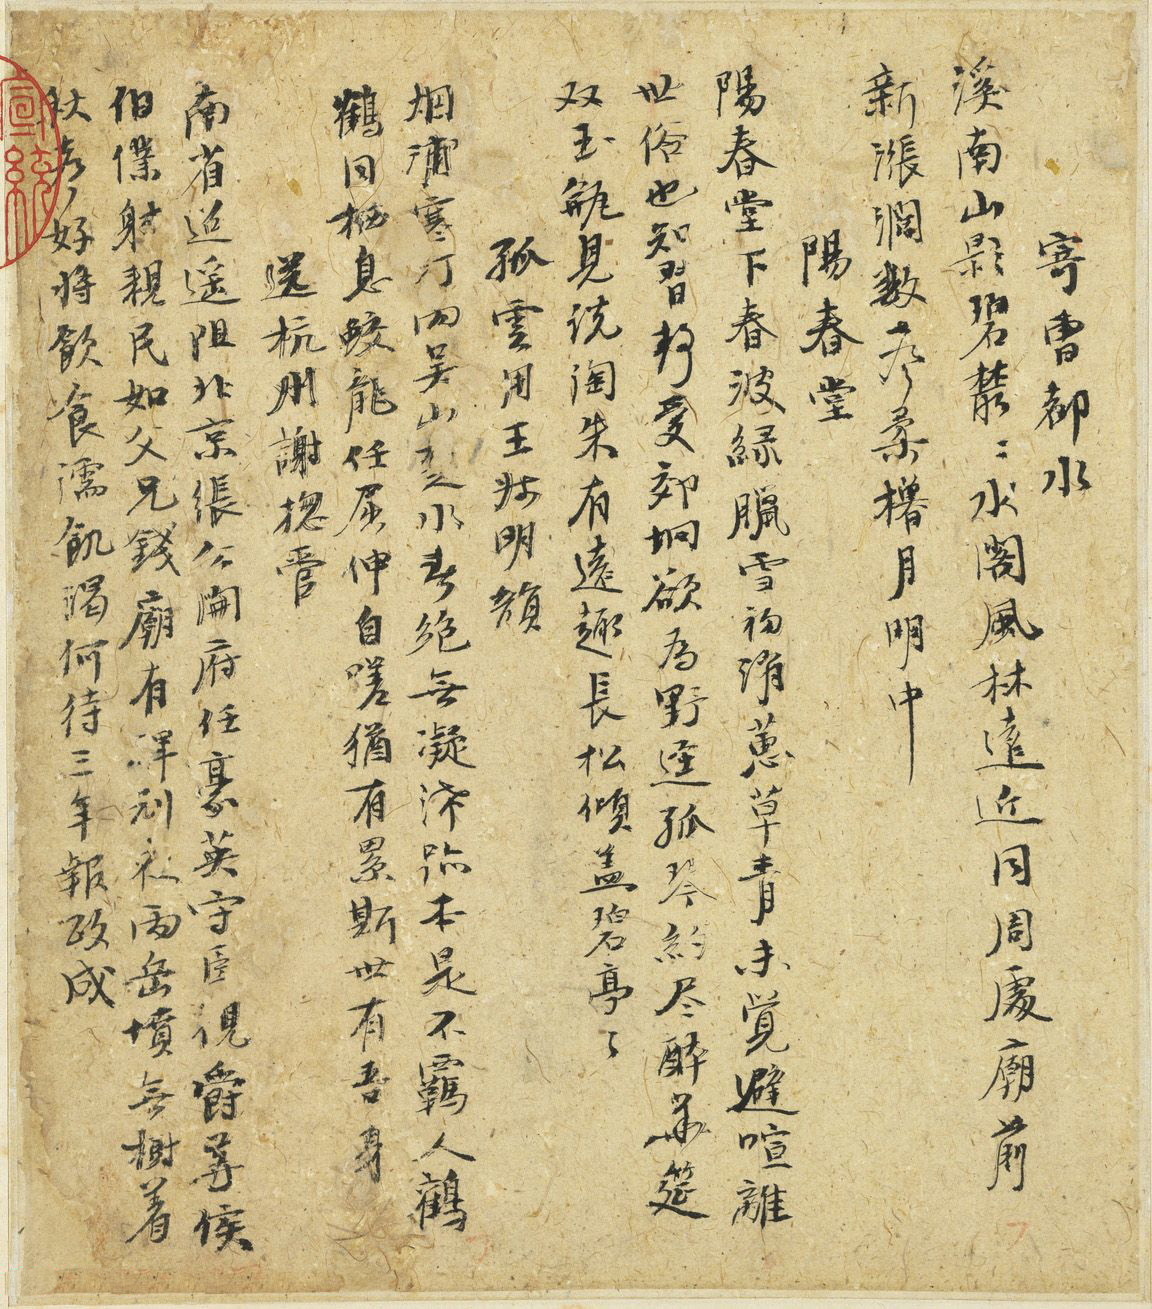 寄曹都水
溪南山影碧叢〻水閣風林遠近同周處廟前
新漲濶數聲柔櫓月明中
陽春堂
陽春堂下春波緑臘雪初消蕙草青未覺避喧離
世俗也知習靜愛郊坰欲為野逕孤琴約尽醉華筵
双玉瓶見説陶朱有遠趣長松傾盖碧亭〻
孤雲用王叔明韻
烟浦寒汀両吴山楚水春絶無凝滯跡本是不羈人鶴
鶴同栖息蛟龍任屈伸自嗟猶有累斯世有吾身
送杭州謝揔管
南省迢遥阻北京張公開府任豪英守臣視爵等侯
伯僕射親民如父兄錢廟有碑刊 両岳墳無樹着
秋聲好将飲食濡飢渴何待三年報政成
宣統